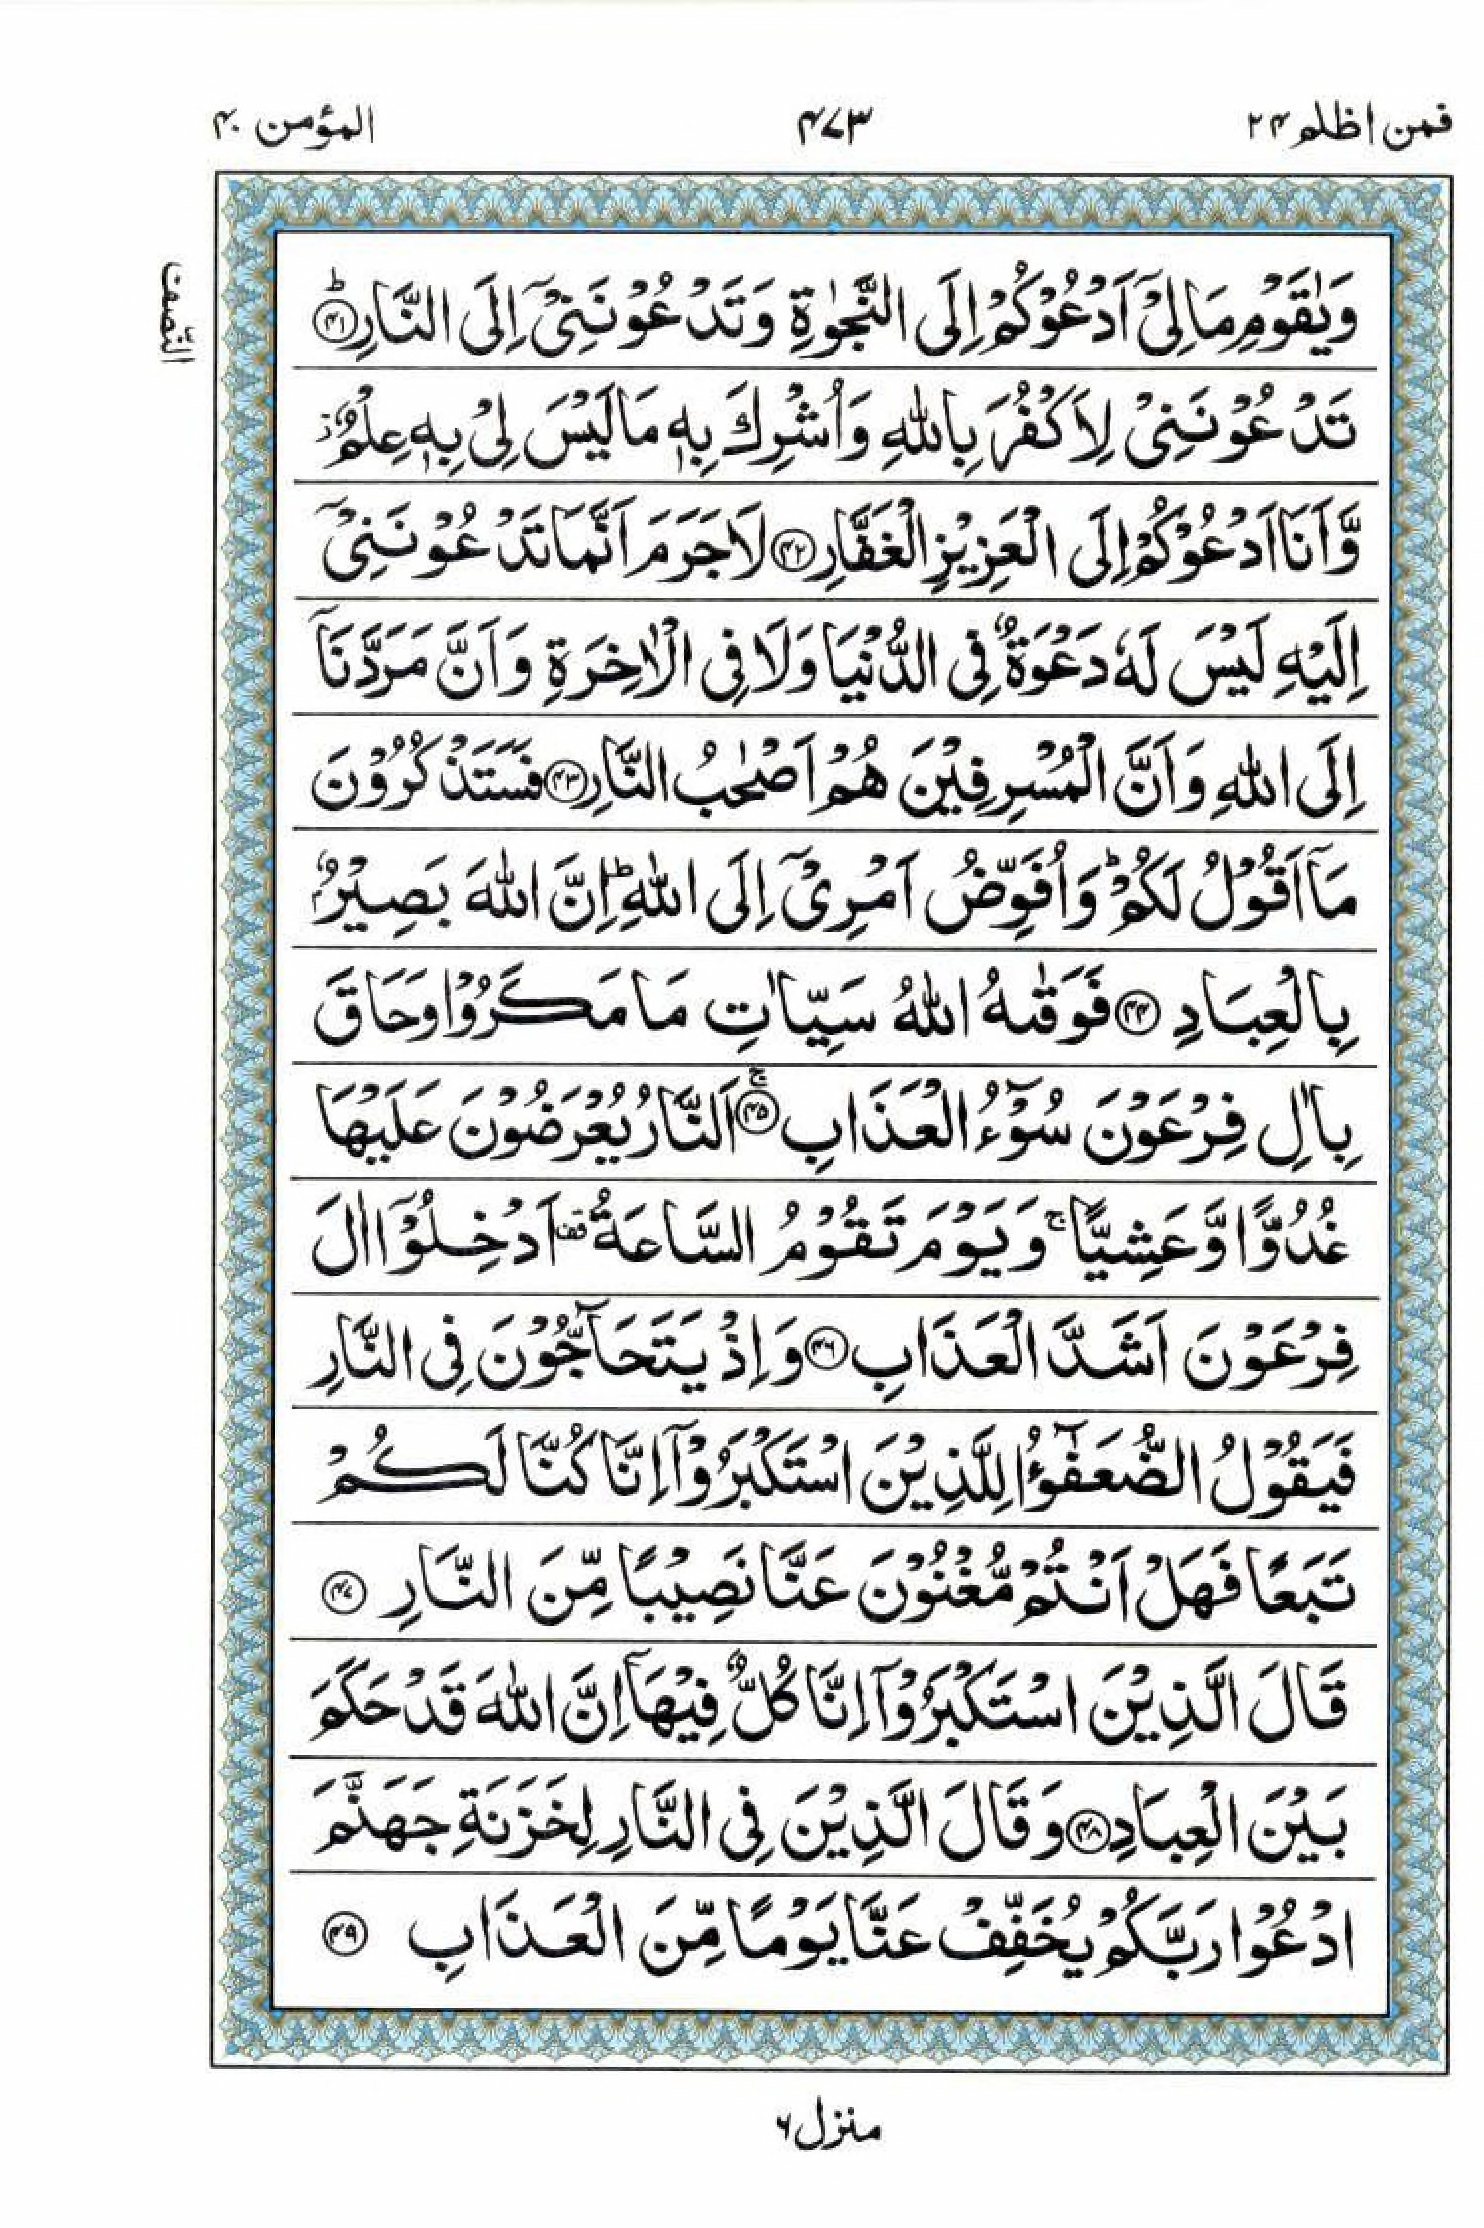 فمن اظلم ۲۴
۴۷۳
المؤمن ۴۰
النّصف
وَيٰقَوْمِ مَا لِىْٓ اَدْعُوْكُمْ اِلَى النَّجٰوةِ وَتَدْعُوْنَنِىْٓ اِلَى النَّارِ ؕ‏﴿۴۱﴾
تَدْعُوْنَنِىْ لِاَكْفُرَ بِاللّٰهِ وَاُشْرِكَ بِهٖ مَا لَيْسَ لِىْ بِهٖ عِلْمٌ ز
وَّاَنَا اَدْعُوْكُمْ اِلَى الْعَزِيْزِ الْغَفَّارِ ﴿۴۲﴾ لَا جَرَمَ اَنَّمَا تَدْعُوْنَنِىْٓ
اِلَيْهِ لَيْسَ لَهٗ دَعْوَةٌ فِى الدُّنْيَا وَلَا فِى الْاٰخِرَةِ وَاَنَّ مَرَدَّنَآ
اِلَى اللّٰهِ وَاَنَّ الْمُسْرِفِيْنَ هُمْ اَصْحٰبُ النَّارِ ﴿۴۳﴾ فَسَتَذْكُرُوْنَ
مَآ اَقُوْلُ لَكُمْ ؕ وَاُفَوِّضُ اَمْرِىْٓ اِلَى اللّٰهِ ؕ اِنَّ اللّٰهَ بَصِيْرٌۢ
بِالْعِبَادِ ﴿۴۴﴾ فَوَقٰٮهُ اللّٰهُ سَيِّاٰتِ مَا مَكَرُوْا وَحَاقَ
بِاٰلِ فِرْعَوْنَ سُوْٓءُ الْعَذَابِ ۚ﴿۴۵﴾ اَلنَّارُ يُعْرَضُوْنَ عَلَيْهَا
غُدُوًّا وَّعَشِيًّا ۚ وَيَوْمَ تَقُوْمُ السَّاعَةُ قف اَدْخِلُوْٓا اٰلَ
فِرْعَوْنَ اَشَدَّ الْعَذَابِ ﴿۴۶﴾ وَاِذْ يَتَحَآجُّوْنَ فِى النَّارِ
فَيَقُوْلُ الضُّعَفٰٓؤُا لِلَّذِيْنَ اسْتَكْبَرُوْٓا اِنَّا كُنَّا لَكُمْ
تَبَعًا فَهَلْ اَنْتُمْ مُّغْنُوْنَ عَنَّا نَصِيْبًا مِّنَ النَّارِ ﴿۴۷﴾
قَالَ الَّذِيْنَ اسْتَكْبَرُوْٓا اِنَّا كُلٌّ فِيْهَآ اِنَّ اللّٰهَ قَدْ حَكَمَ
بَيْنَ الْعِبَادِ ﴿۴۸﴾ وَقَالَ الَّذِيْنَ فِى النَّارِ لِخَزَنَةِ جَهَنَّمَ
ادْعُوْا رَبَّكُمْ يُخَفِّفْ عَنَّا يَوْمًا مِّنَ الْعَذَابِ ﴿۴۹﴾
منزل ۶